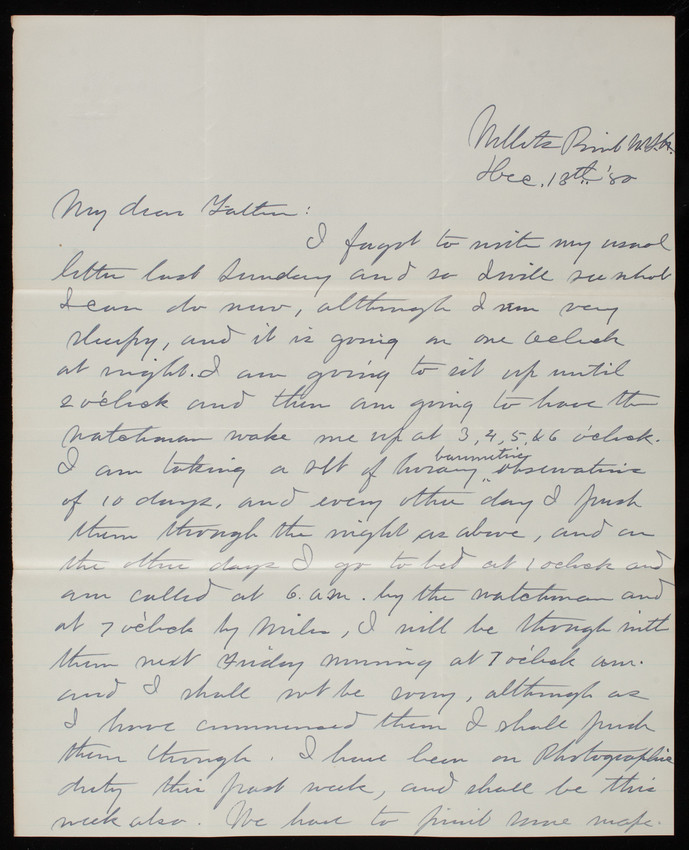 Willets Point N.Y.H.
Dec. 13th '80
My dear Father:
I forgot to write my usual
letter last Sunday and so I will see what
I can do now, although I am very
sleepy, and it is going on one o'clock
at night. I am going to sit up until
2 o'clock and then am going to have the
watchman wake me up at 3, 4, 5, & 6 o'clock.
I am taking a set of hourly barometric observations
of 10 days, and every other day I push
them through the night as above, and on
the other days I go to bed at 1 o'clock and
am called at 6. a.m. by the watchman and
at 7 o'clock by Miler, I will be through with
them next Friday morning at 7 o'clock a.m.
and I shall not be sorry, although as
I have commenced them I shall push
them through. I have been on Photographic
duty this past week, and shall be this
week also. We have to print some maps.